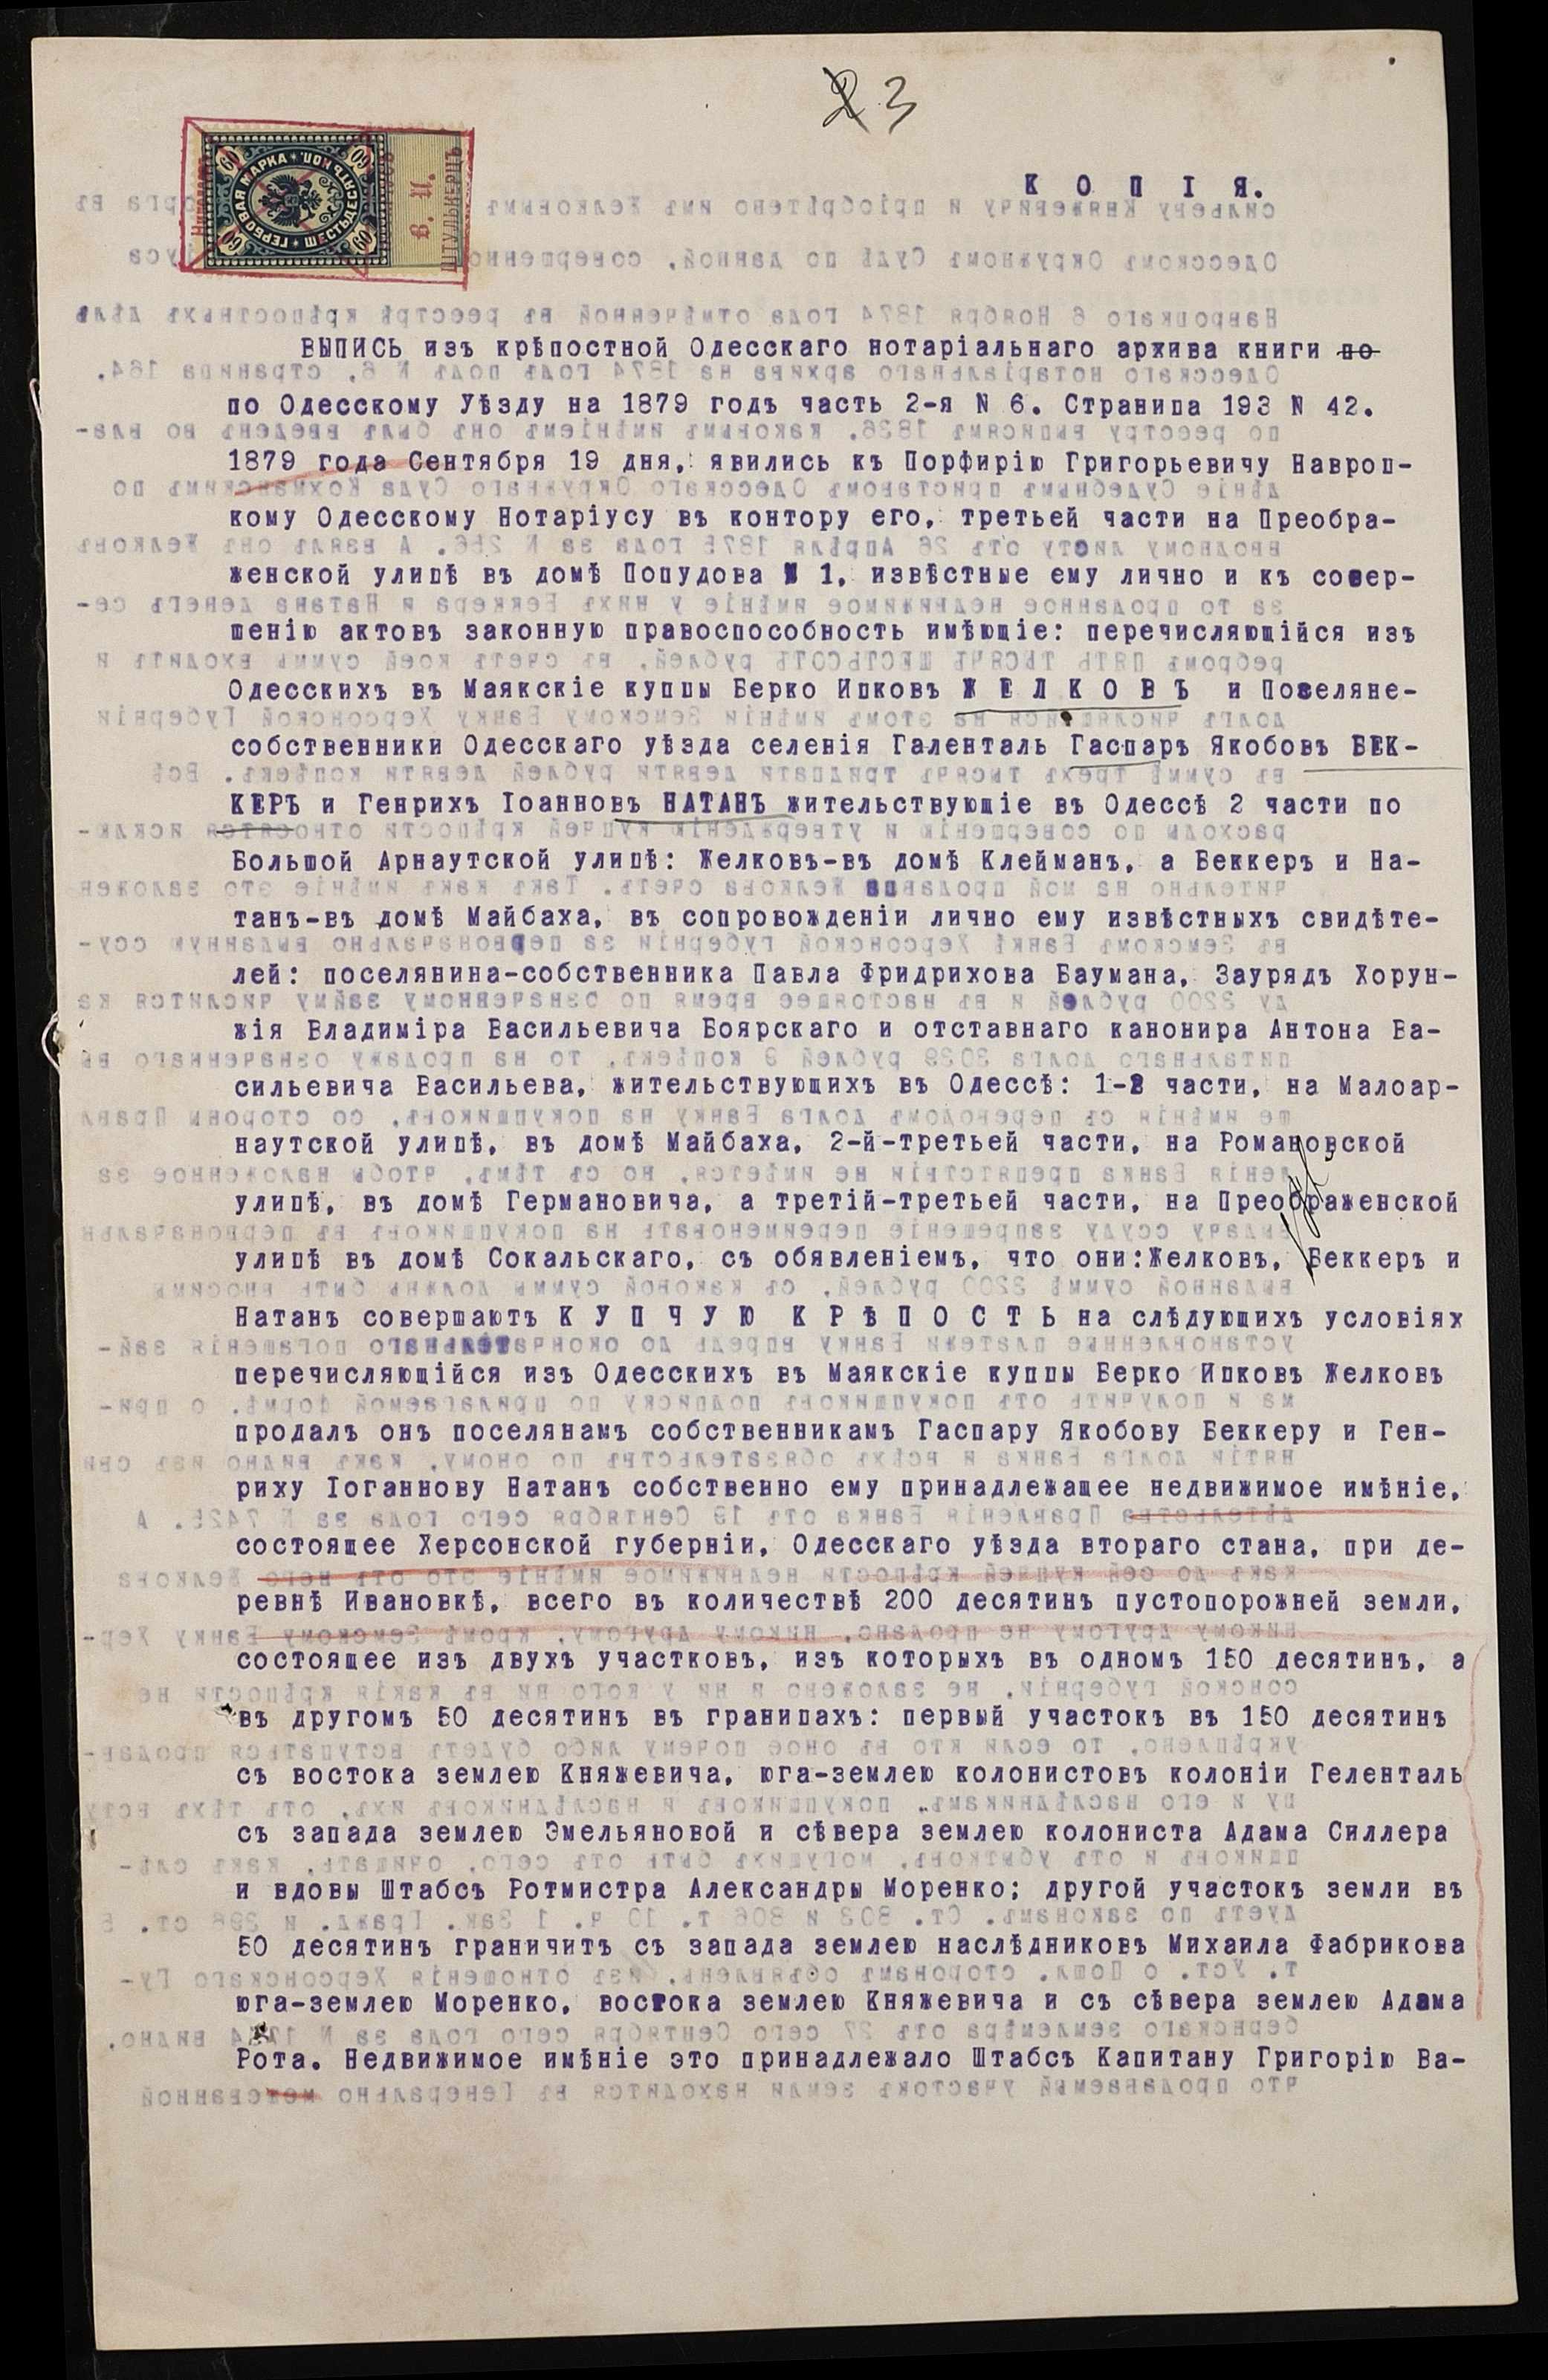 2 3
К О П І Я.
ГЕРБОВАЯ МАРКА ШЕСТЬДЕСЯТЪ КОП.
60 60 60 60
В. И.
ШТУЛЬКЕРЦЪ
ВЫПИСЬ изъ крѣпостной Одесскаго нотаріальнаго архива книги по
по Одесскому Уѣзду на 1879 годъ часть 2-я N 6. Страница 193 N 42.
1879 года Сентября 19 дня, явились къ Порфирію Григорьевичу Навроц-
кому Одесскому Нотаріусу въ контору его, третьей части на Преобра-
женской улицѣ въ домѣ Попудова N 1, извѣстные ему лично и къ совер-
шенію актовъ законную правоспособность имѣющіе: перечисляющійся изъ
Одесскихъ въ Маякскіе купцы Берко Ицковъ Ж Е Л К О В Ъ и Поселяне-
собственники Одесскаго уѣзда селенія Галенталь Гаспаръ Якобовъ БЕК-
КЕРЪ и Генрихъ Іоанновъ НАТАНЪ жительствующіе въ Одессѣ 2 части по
Большой Арнаутской улицѣ: Желковъ-въ домѣ Клейманъ, а Беккеръ и На-
танъ-въ домѣ Майбаха, въ сопровожденіи лично ему извѣстныхъ свидѣте-
лей: поселянина-собственника Павла Фридрихова Баумана, Заурядъ Хорун-
жія Владиміра Васильевича Боярскаго и отставнаго канонира Антона Ва-
сильевича Васильева, жительствующихъ въ Одессѣ: 1-2 части, на Малоар-
наутской улицѣ, въ домѣ Майбаха, 2-й-третьей части, на Романовской
улицѣ, въ домѣ Германовича, а третій-третьей части, на Преображенской
улицѣ въ домѣ Сокальскаго, съ обявленіемъ, что они:Желковъ, Беккеръ и
Натанъ совершаютъ К У П Ч У Ю К Р Ѣ П О С Т Ь на слѣдующихъ условіях
перечисляющійся изъ Одесскихъ въ Маякскіе купцы Берко Ицковъ Желковъ
продалъ онъ поселянамъ собственникамъ Гаспару Якобову Беккеру и Ген-
риху Іоганнову Натанъ собственно ему принадлежащее недвижимое имѣніе,
состоящее Херсонской губерніи, Одесскаго уѣзда втораго стана, при де-
ревнѣ Ивановкѣ, всего въ количествѣ 200 десятинъ пустопорожней земли,
состоящее изъ двухъ участковъ, изъ которыхъ въ одномъ 150 десятинъ, а
въ другомъ 50 десятинъ въ границахъ: первый участокъ въ 150 десятинъ
съ востока землею Княжевича, юга-землею колонистовъ колоніи Геленталь
съ запада землею Эмельяновой и сѣвера землею колониста Адама Силлера
и вдовы Штабсъ Ротмистра Александры Моренко; другой участокъ земли въ
50 десятинъ граничитъ съ запада землею наслѣдниковъ Михаила Фабрикова
юга-землею Моренко, востока землею Княжевича и съ сѣвера землею Адама
Рота. Недвижимое имѣніе это принадлежало Штабсъ Капитану Григорію Ва-